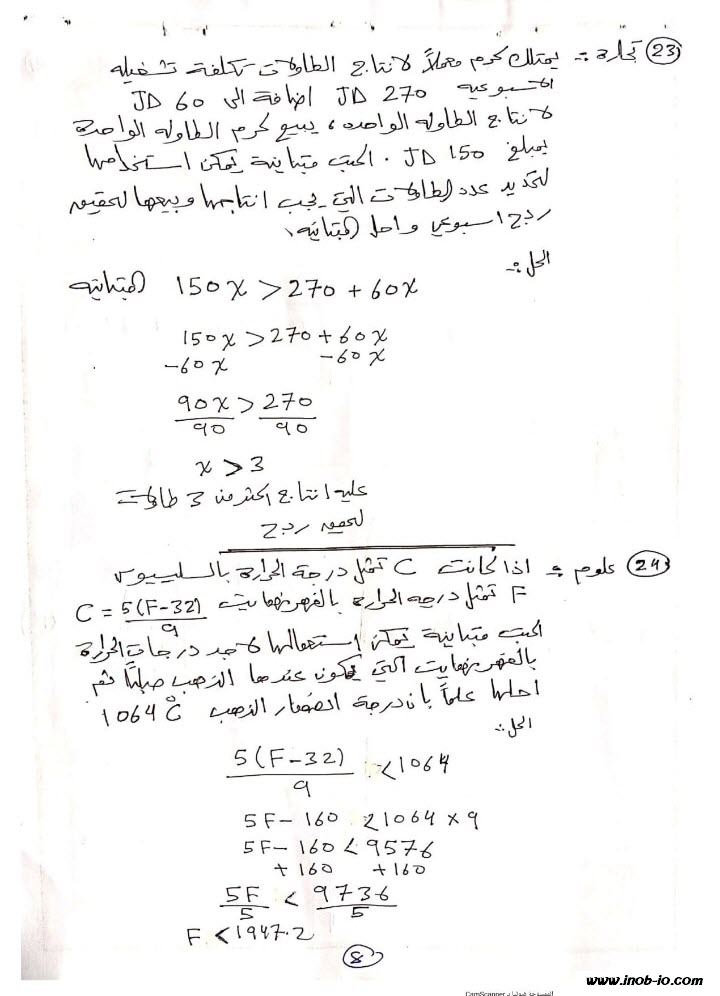 23 تجارة :- يمتلك كرم معملاً لانتاج الطاولات تكلفة تشغيله
الاسبوعيه 270 JD اضافة الى 60 JD
لانتاج الطاوله الواحده، يبيع كرم الطاوله الواحدة
بمبلغ 150 JD . اكتب متباينة يمكن استخدامها
لتحديد عدد الطاولات التي يجب انتاجها وبيعها لتحقيق
ربح اسبوعي واحل المتباينه.
الحل :-
150x > 270 + 60x المتباينه
150x > 270 + 60x
-60x -60x
90x > 270
90 90
x > 3
عليه انتاج اكثر من 3 طاولات
لتحقيق ربح
24 علوم :- اذا كانت C تمثل درجة الحرارة بالسليسيوس
F تمثل درجه الحراره بالفهرنهايت C = 5(F-32)
9
اكتب متباينة يمكن استعمالها لاجد درجات الحرارة
بالفهرنهايت التي يكون عندها الذهب صلبًا ثم
احلها علماً بان درجة انصهار الذهب 1064°C
الحل :-
5(F-32) < 1064
9
5F - 160 < 1064 x 9
5F - 160 < 9576
+ 160 + 160
5F < 9736
5 5
F < 1947.2
8
www.inob-jo.com
الممسوحة ضوئيا بـ CamScanner